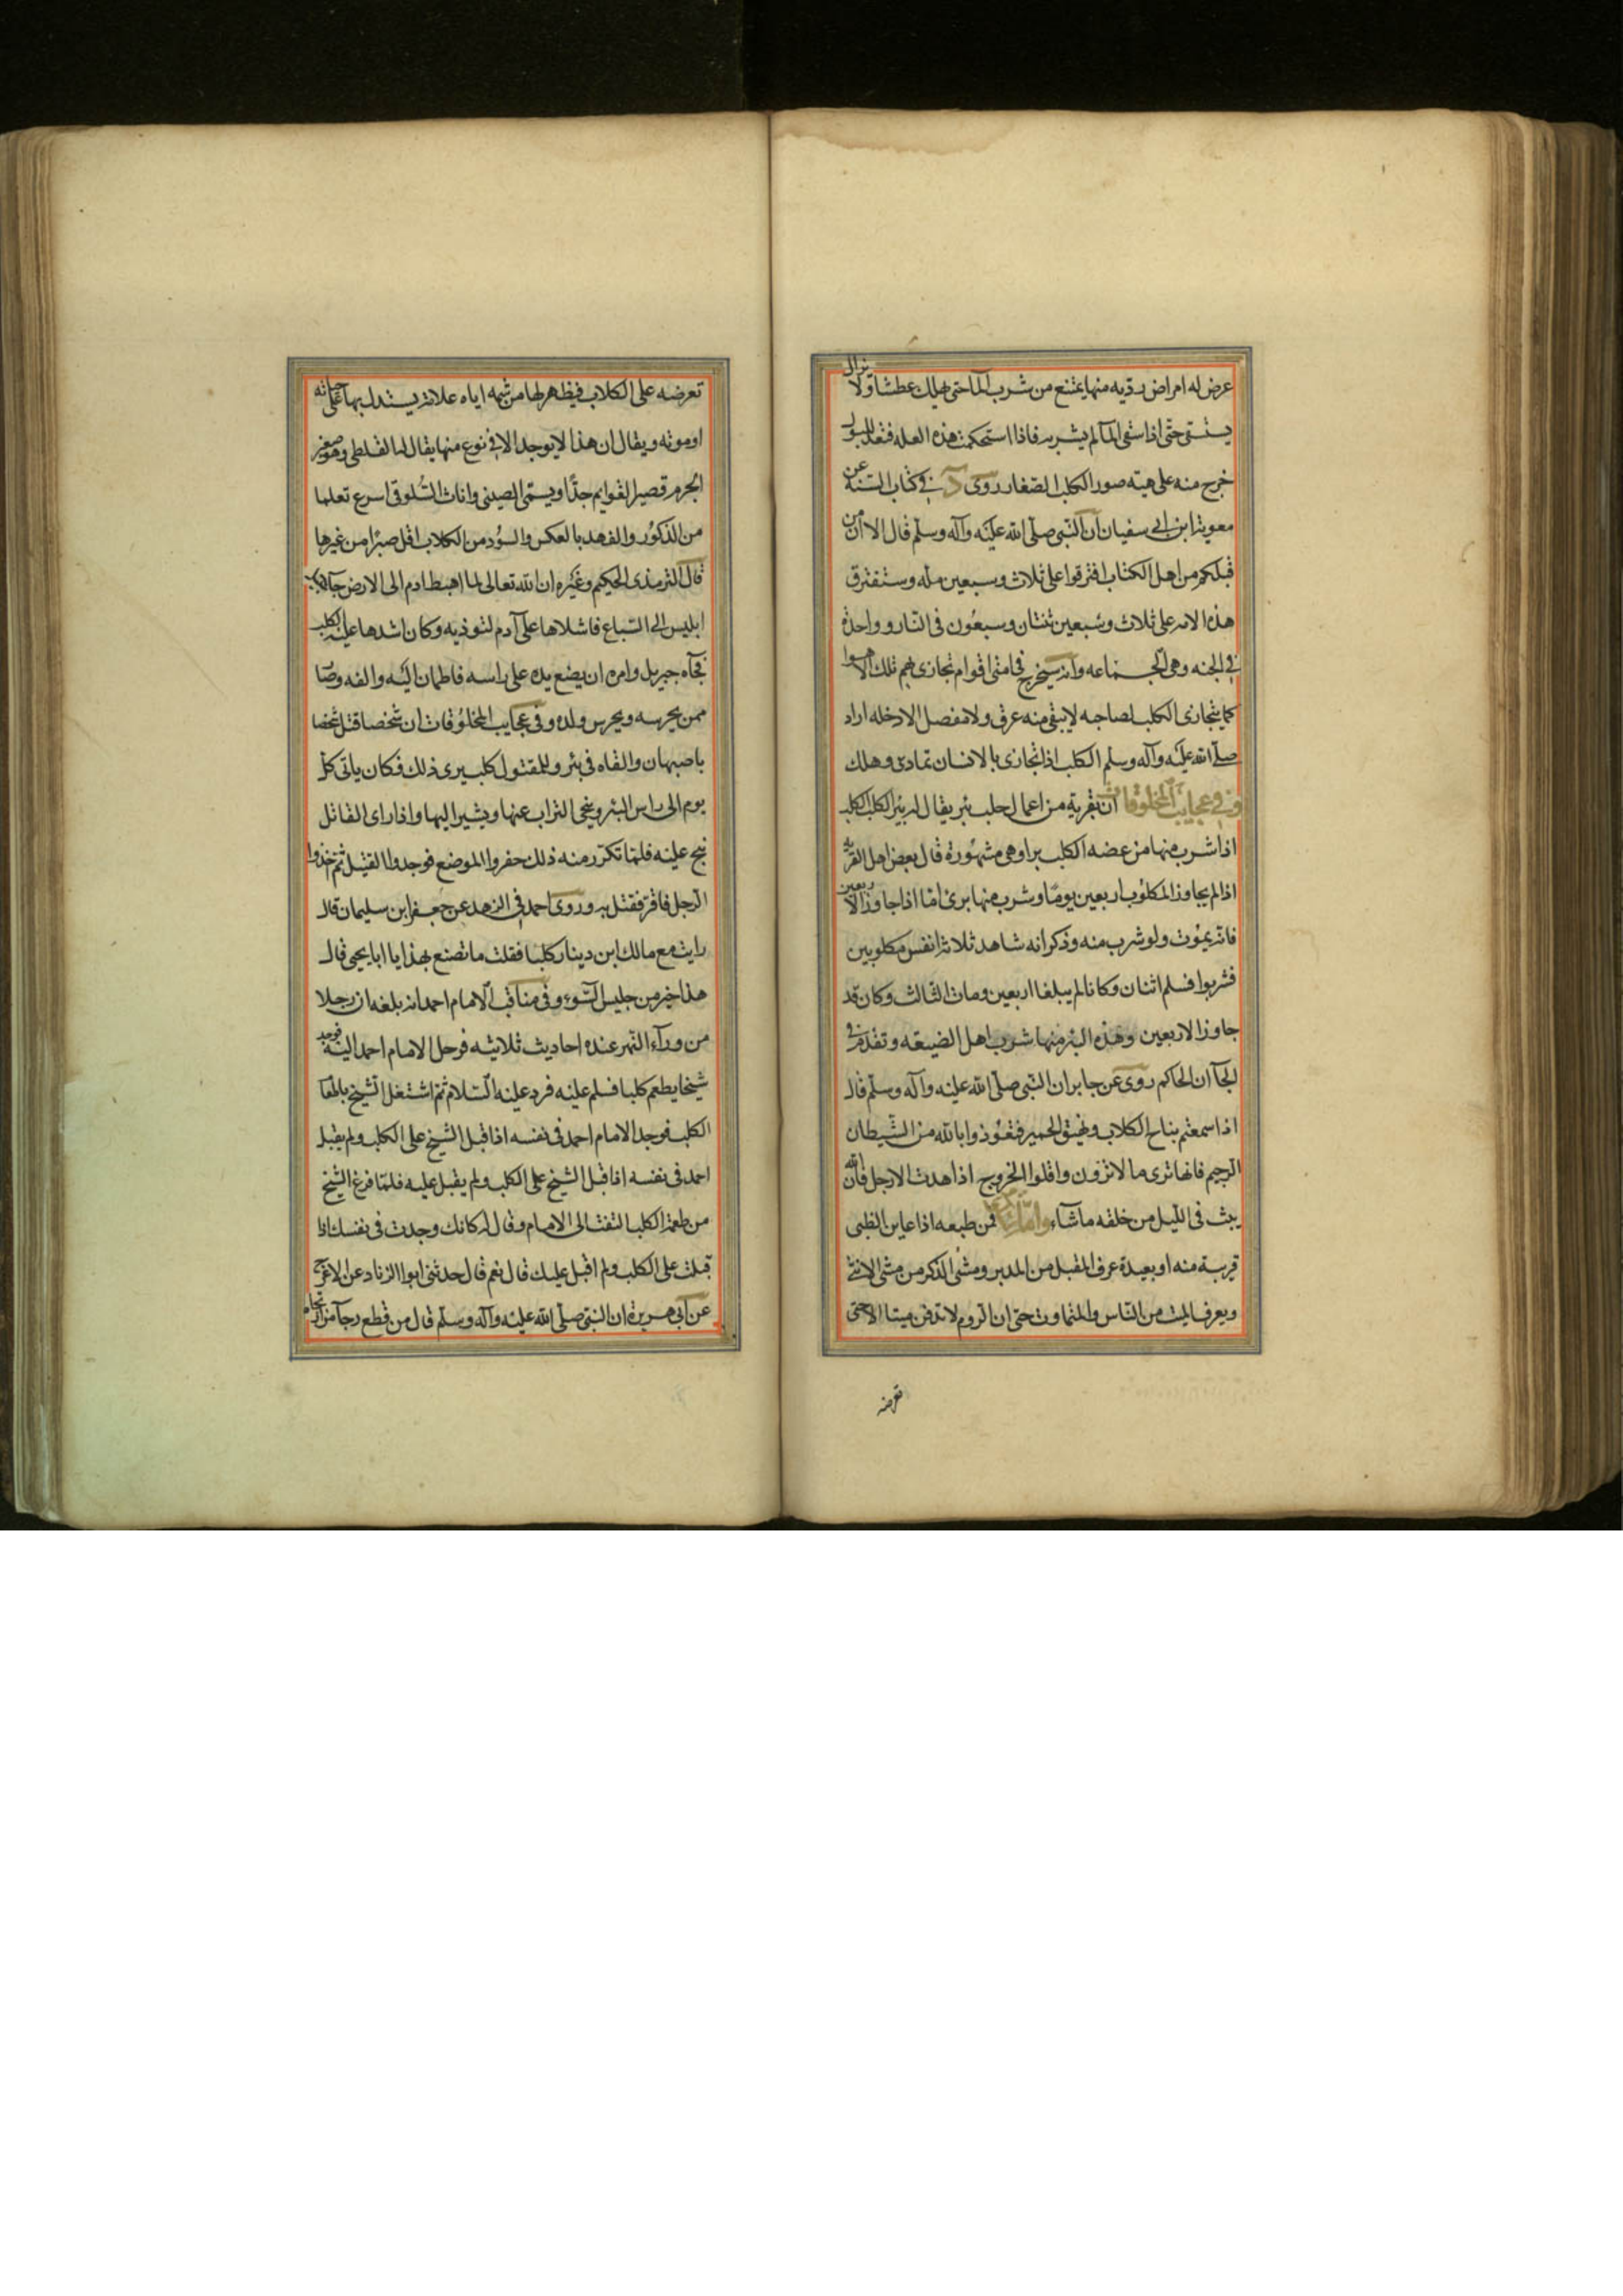 عرض له امراض رديه منها يمتنع من شرب الما حتى يهلك عطشا ولا يزال
يستسقى حتى اذا سقى الما لم يشربه فاذا استحكمت هذه العله فقعد للبول
خرج منه على هيئه صور الكلاب الصغار روى د في كتاب السنه عن
معوية ابن ابي سفيان ان النبي صلى الله عليه وآله وسلم قال الا ان من
قبلكم من اهل الكتاب افترقوا على ثلاث وسبعين مله وستفترق
هذه الامه على ثلاث وسبعين ثنتان وسبعون في النار وواحدة
في الجنه وهي الجماعه وانه سيخرج في امتي اقوام تجارى بهم تلك الاهوا
كما يتجارى الكلب لصاحبه لا يبقى منه عرق ولا مفصل الا دخله اراد
صلى الله عليه وآله وسلم الكلب اذا تجارى بالانسان تمادى وهلك
وفي عجايب المخلوقات ان بقرية من اعمال حلب بئر يقال له بئر الكلب الكلب
اذا شرب منها من عضه الكلب برا وهي مشهورة قال بعض اهل القرية
اذا لم يجاوز المكلوب اربعين يوما وشرب منها برئ اما اذا جاوز الاربعين
فانه يموت ولو شرب منه وذكر انه شاهد ثلاثة انفس مكلوبين
فشربوا فسلم اثنان وكانا لم يبلغا اربعين ومات الثالث وكان قد
جاوز الاربعين وهذه البئر منها شرب اهل الضيعه وتقدم في
الجآن الحاكم روى عن جابر ان النبي صلى الله عليه وآله وسلم قال
اذا سمعتم بناح الكلاب ونهيق الحمير فتعوذوا بالله من الشيطان
الرجيم فانها ترى ما لا ترون واقلوا الخروج اذا هدت الارجل فان الله
يبث في الليل من خلقه ما شآء واما فمن طبعه اذا عاين الظبى
قريبة منه او بعيدة عرف المقبل من المدبر ومشى الذكر من مشى الانثى
ويعرف الميت من الناس والمتماوت حتى ان الروم لا تدفن ميتا الا حتى
تعرضه
تعرضه على الكلاب فيظهر لها من شمه اياه علامة يستدل بها على حياته
او موته ويقال ان هذا لا يوجد الا في نوع منها يقال لها القلطي وهو صغير
الجرم قصير القوايم جدا ويسمى الصيني واناث السلوقي اسرع تعلما
من الذكور والفهد بالعكس والسود من الكلاب اقل صبرا من غيرها
قال الترمذي الحكيم وغيره ان الله تعالى لما اهبط ادم الى الارض جآء
ابليس الى السباع فاشلاها على آدم لتوذيه وكان اشدها عليه الكلب
فجآه جبريل وامره ان يضع يده على راسه فاطمان اليه والفه وصا
ممن يحرسه ويحرس ولده وفي عجايب المخلوقات ان شخصا قتل شخصا
باصبهان والقاه في بئر وللمقتول كلب يرى ذلك فكان ياتي كل
يوم الى راس البئر وينحي التراب عنها ويشير اليها واذا راى القاتل
نبح عليه فلما تكرر منه ذلك حفروا الموضع فوجدوا القتيل ثم اخذوا
الرجل فاقر فقتل به وروى احمد في الزهد عن جعفر ابن سليمان قال
رايت مع مالك ابن دينار كلبا فقلت ما تصنع بهذا يا ابا يحيى قال
هذا خير من جليس السوء وفي مناقب الامام احمد انه بلغه ان رجلا
من ورآء النهر عنده احاديث ثلاثيه فرحل الامام احمد اليه فوجد
شيخا يطعم كلبا فسلم عليه فرد عليه السلام ثم اشتغل الشيخ باطعا
الكلب فوجد الامام احمد في نفسه اذا قبل الشيخ على الكلب ولم يقبل
احمد في نفسه اذا قبل الشيخ على الكلب ولم يقبل عليه فلما فرغ الشيخ
من طعمة الكلب التفت الى الامام وقال له كانك وجدت في نفسك اذا
قبلت على الكلب ولم اقبل عليك قال نعم قال حدثني ابوا الزناد عن الاعرج
عن ابي هريرة ان النبي صلى الله عليه وآله وسلم قال من قطع رجآ من ارتجاه